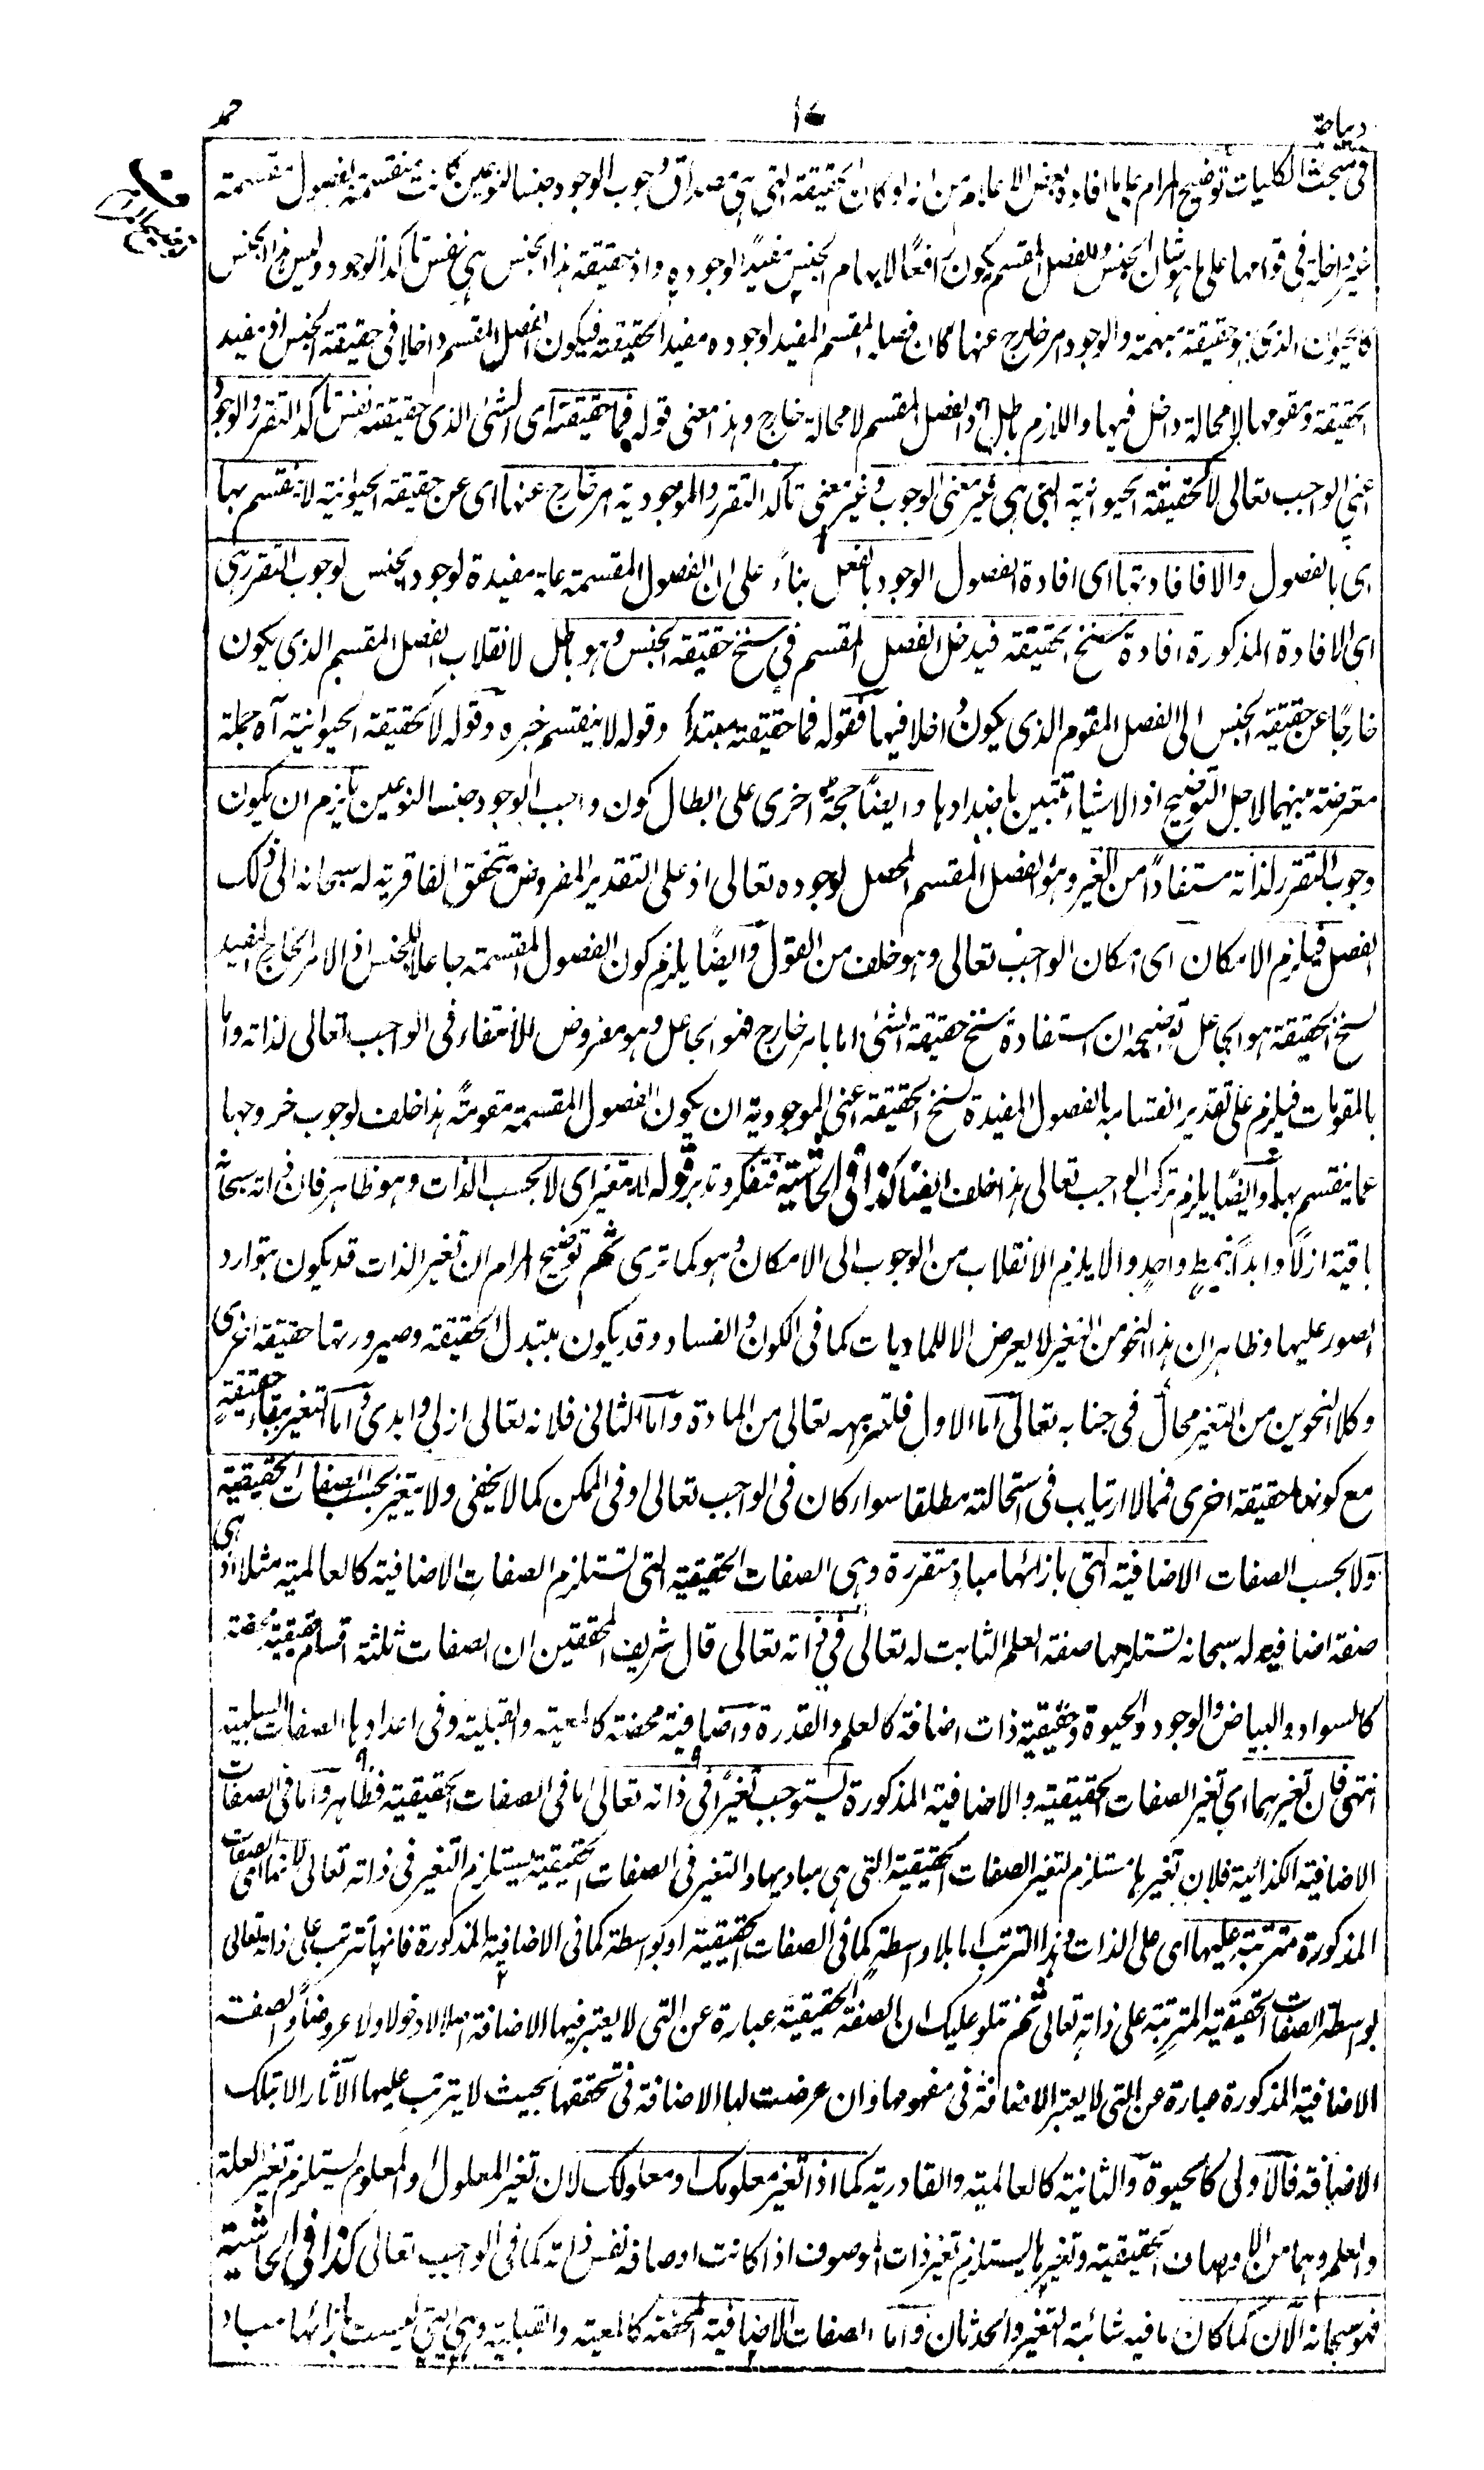 ديباجة
١٤
حمد
في مبحث الكليات توضيح المرام على ما افاده بعض الاعلام من انه لو كان الحقيقة التي هي مصداق وجوب الوجود جنسا لنوعين كانت منقسمة بفصول مقسمة
غير داخلة في قوامها على ما هو شان الجنس والفصل المقسم يكون رافعًا لابهام الجنس مفيدًا لوجوده واذ حقيقة هذا الجنس هي نفس تاكد الوجود وليس هذا الجنس
كالحيوان الذي هو حقيقة مبهمة والوجود امر خارج عنها كان فصله المقسم المفيد لوجوده مفيد الحقيقة فيكون الفصل المقسم داخلا في حقيقة الجنس اذ مفيد
الحقيقة ومقومها لا محالة داخل فيها واللازم باطل اذ الفصل المقسم لا محالة خارج وهذا معنى قوله فما حقيقته اى الشئ الذي حقيقته نفس تاكد التقرر والوجود
اعني الواجب تعالى لا كالحقيقة الحيوانية التي هي غير معنى الوجوب وغير معنى تاكد التقرر والموجودية امر خارج عنها اى عن حقيقة الحيوانية لا ينقسم بها
اى بالفصول والا فافادتها اى افادة الفصول الوجود بالفعل بناءً على ان الفصول المقسمة علة مفيدة لوجود الجنس لوجوب التقرر هي
اى الافادة المذكورة افادة سنخ الحقيقة فيدخل الفصل المقسم في سنخ حقيقة الجنس وهو باطل لانقلاب الفصل المقسم الذي يكون
خارجًا عن حقيقة الجنس الى الفصل المقوم الذي يكون داخلا فيها فقوله فما حقيقته مبتدأ وقوله لا ينقسم خبره وقوله لا كحقيقة الحيوانية آه جملة
معترضة بينهما لاجل التوضيح اذ الاشياء تتبين باضدادها وايضًا حجة اخرى على ابطال كون واجب الوجود جنسا لنوعين يلزم ان يكون
وجوب التقرر لذاته مستفادًا من الغير وهو الفصل المقسم المحصل لوجوده تعالى اذ على التقدير المفروض تتحقق الفاقرية له سبحانه الى ذلك
الفصل فيلزم الامكان اى امكان الواجب تعالى وهو خلف من القول وايضًا يلزم كون الفصول المقسمة جاعلا للجنس اذ الامر الخارج المفيد
لسنخ الحقيقة هو الجاعل توضيحه ان استفادة سنخ حقيقة الشئ اما بامر خارج فهو الجاعل وهو مفروض الانتفاء في الواجب تعالى لذاته واما
بالمقومات فيلزم على تقدير انقسامه بالفصول المفيدة لسنخ الحقيقة اعني الموجودية ان يكون الفصول المقسمة مقومة هذا خلف لوجوب خروجها
عما ينقسم بها وايضًا يلزم تركب الواجب تعالى هذا خلف ايضًا كذا في الحاشية فتفكر وتدبر قوله لا يتغير اى لا بحسب الذات وهو ظاهر فان ذاته سبحانه
باقية ازلًا وابدًا بنمط واحد والا يلزم الانقلاب من الوجوب الى الامكان وهو كما ترى ثم توضيح المرام ان تغير الذات قد يكون بتوارد
الصور عليها وظاهر ان هذا النحو من التغير لا يعرض الا للماديات كما في الكون والفساد وقد يكون بتبدل الحقيقة وصيرورتها حقيقة اخرى
وكلا النحوين من التغير محال في جنابه تعالى اما الاول فلتنزهه تعالى من المادة واما الثاني فلانه تعالى ازلي وابدي واما التغير ببقاء حقيقة
مع كونها حقيقة اخرى فمما لا ارتياب في استحالته مطلقا سواء كان في الواجب تعالى او في الممكن كما لا يخفى ولا يتغير بحسب الصفات الحقيقية
ولا بحسب الصفات الاضافية التي بازائها مباد متقررة وهي الصفات الحقيقية التي تستلزم الصفات الاضافية كالعالمية مثلا اذ هي
صفة اضافية له سبحانه تستلزمها صفة العلم الثابت له تعالى في ذاته تعالى قال شريف المحققين ان الصفات ثلثة اقسام حقيقية محضة
كالسواد والبياض والوجود والحيوة وحقيقية ذات اضافة كالعلم والقدرة واضافية محضة كالمعية والقبلية وفي اعدادها الصفات السلبية
انتهى فان تغيرهما اى تغير الصفات الحقيقية والاضافية المذكورة يستوجب تغيرًا في ذاته تعالى اما في الصفات الحقيقية فظاهر واما في الصفات
الاضافية الكذائية فلان تغيرها مستلزم لتغير الصفات الحقيقية التي هي مباديها والتغير في الصفات الحقيقية يستلزم التغير في ذاته تعالى لانها اى الصفات
المذكورة مترتبة عليها اى على الذات وهذا الترتب اما بلا واسطة كما في الصفات الحقيقية او بواسطة كما في الاضافية المذكورة فانها تترتب على ذاته تعالى
بواسطة الصفات الحقيقية المترتبة على ذاته تعالى ثم نتلو عليك ان الصفة الحقيقية عبارة عن التي لا يعتبر فيها الاضافة اصلا لا دخولا ولا عروضًا والصفة
الاضافية المذكورة عبارة عن التي لا يعتبر الاضافة في مفهومها وان عرضت لها الاضافة في تحققها بحيث لا يترتب عليها الآثار الا بتلك
الاضافة فالاولى كالحيوة والثانية كالعالمية والقادرية كما اذا تغير معلومك او معلولك لان تغير المعلول والمعلوم يستلزم تغير العلة
والعلم وهما من الاوصاف الحقيقية وتغيرها يستلزم تغير ذات الموصوف اذا كانت اوصافه نفس ذاته كما في الواجب تعالى كذا في الحاشية
فهو سبحانه الآن كما كان ما فيه شائبة التغير والحدثان واما الصفات الاضافية المحضة كالمعية والقبلية وهي التي ليست بازائها مباد